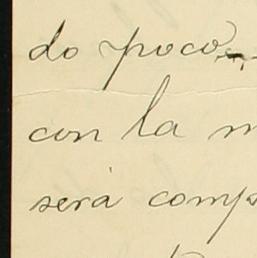 do poco
con la m
será comp